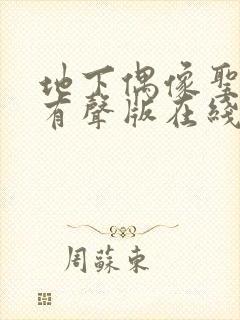 地下偶像聖
有聲版在綫
周蘇東